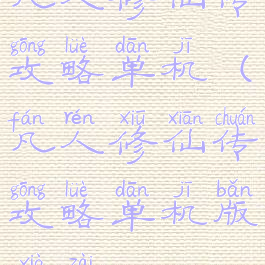 凡人修仙传
gōng lüè dān jī
攻略单机（
fán rén xiū xiān chuán
凡人修仙传
gōng lüè dān jī bǎn
攻略单机版
xià zài